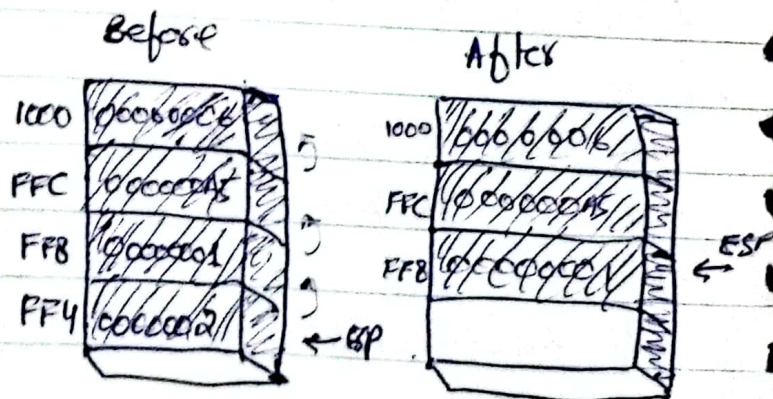 Before
After
1000 00000006
FFC 000000A5
FF8 0000001
FF4 0000002
← ESP
1000 00000006
FFC 000000A5
FF8 00000001
← ESP